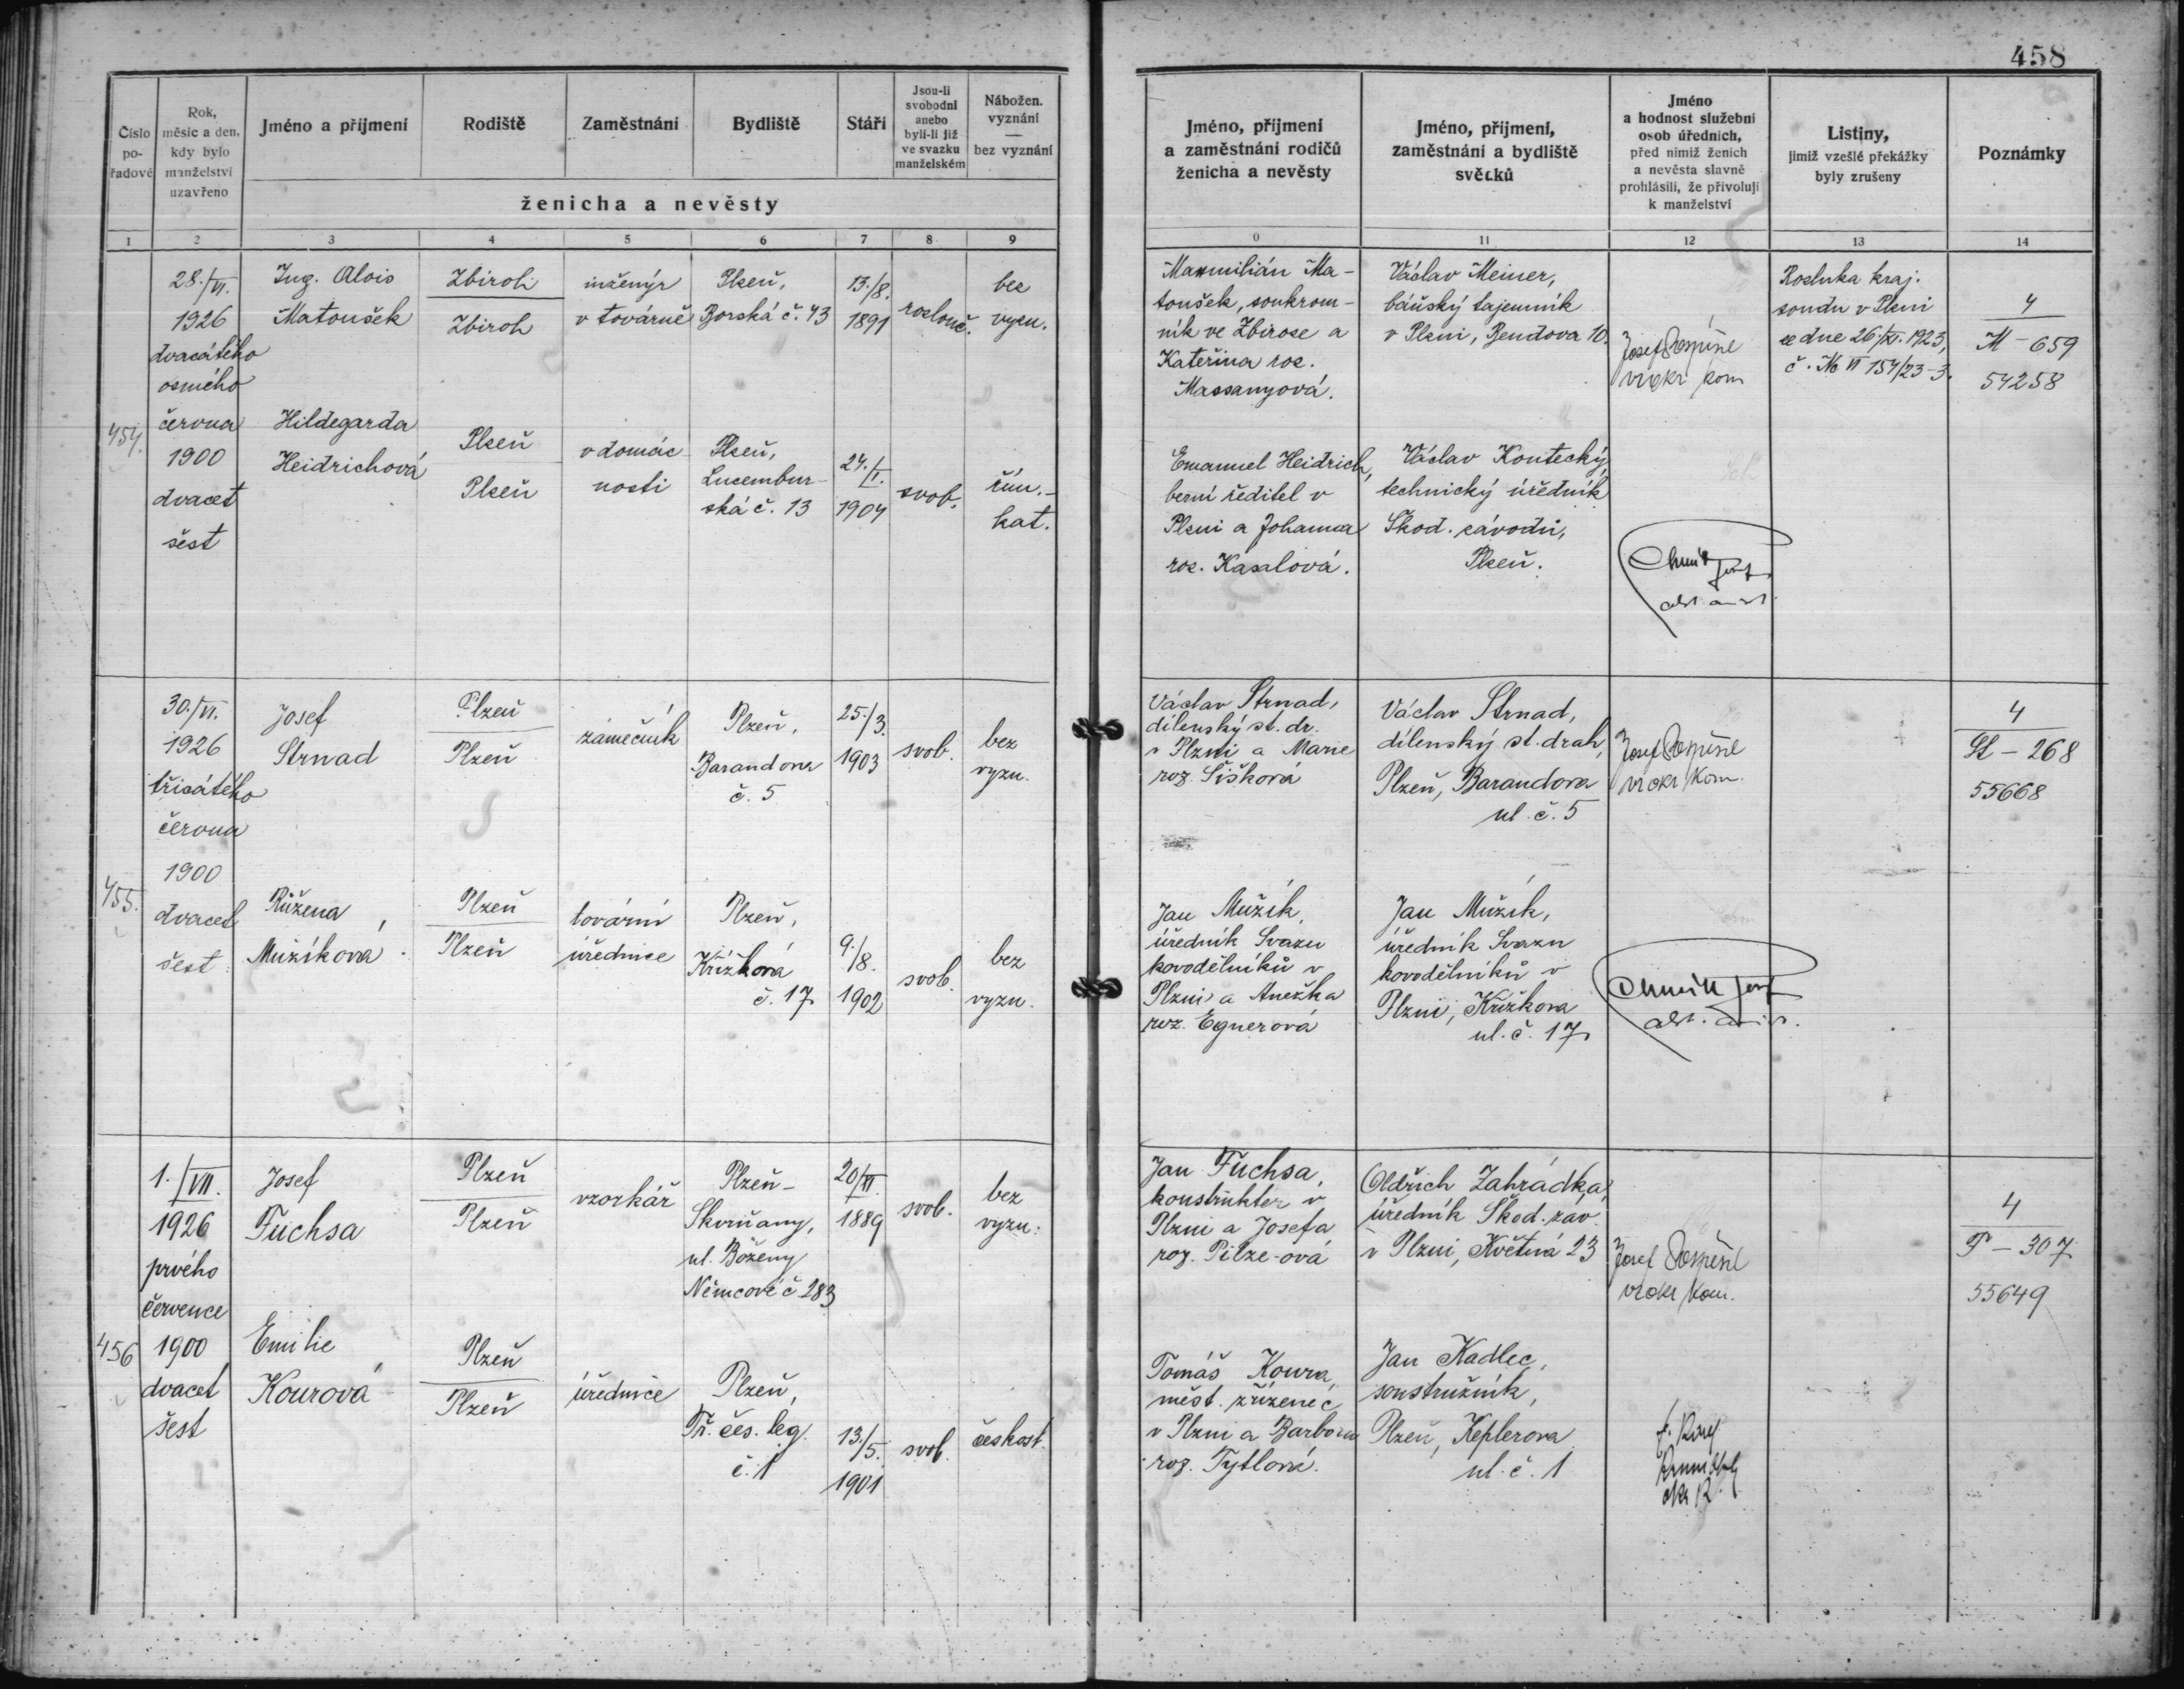 458
Číslo
po-
řadové
Rok,
měsíc a den,
kdy bylo
manželství
uzavřeno
Jméno a příjmení
Rodiště
Zaměstnání
Bydliště
Stáří
Jsou-li
svobodni
anebo
byli-li již
ve svazku
manželském
Nábožen.
vyznání
—
bez vyznání
ženicha a nevěsty
Jméno, příjmení
a zaměstnání rodičů
ženicha a nevěsty
Jméno, příjmení,
zaměstnání a bydliště
svěcků
Jméno
a hodnost služební
osob úředních,
před nimiž ženich
a nevěsta slavně
prohlásili, že přivolují
k manželství
Listiny,
jimiž vzešlé překážky
byly zrušeny
Poznámky
1 2 3 4 5 6 7 8 9 0 11 12 13 14
454.
28./VI.
1926
dvacátého
osmého
června
1900
dvacet
šest
Ing. Alois
Matoušek
Zbiroh
Zbiroh
inženýr
v továrně
Plzeň,
Borská č. 43
13./8.
1891
rozlouč.
bez
vyzn.
Hildegarda
Heidrichová
Plzeň
Plzeň
v domác-
nosti
Plzeň,
Lucembur-
ská č. 13
24./I.
1904
svob.
řím.-
kat.
Maxmilián Ma-
toušek, soukrom-
ník ve Zbiroze a
Kateřina roz.
Massanyová.
Emanuel Heidrich,
berní ředitel v
Plzni a Johanna
roz. Kasalová.
Václav Meiner,
báňský tajemník
v Plzni, Bendova 10.
Václav Koutecký
technický úředník
Škod. závodů,
Plzeň.
Josef Pospíšil
vrokr kom
Rozluka kraj.
soudu v Plzni
ze dne 26./XI. 1923,
č. Nc VI 154/23-3.
4
M - 659
54258
455.
30./VI.
1926
třicátého
června
1900
dvacet
šest
Josef
Strnad
Plzeň
Plzeň
zámečník
Plzeň,
Barandova
č. 5
25./3.
1903
svob.
bez
vyzn.
Růžena
Mužíková
Plzeň
Plzeň
tovární
úřednice
Plzeň,
Křižkova
č. 17
9./8.
1902
svob.
bez
vyzn.
Václav Strnad,
dílenský st. dr.
v Plzni a Marie
roz. Šišková
Jan Mužík,
úředník Svazu
kovodělníků v
Plzni a Anežka
roz. Egnerová
Václav Strnad,
dílenský st. drah,
Plzeň, Barandova
ul. č. 5
Jan Mužík,
úředník Svazu
kovodělníků v
Plzni, Křižkova
ul. č. 17
Josef Pospíšil
vrokr kom.
4
St - 268
55668
456
1./VII.
1926
prvého
července
1900
dvacet
šest
Josef
Fuchsa
Plzeň
Plzeň
vzorkář
Plzeň-
Skvrňany,
ul. Boženy
Němcové č 283
20/XI.
1889
svob.
bez
vyzn.
Emilie
Kourová
Plzeň
Plzeň
úřednice
Plzeň,
Tř. čes. leg.
č. 1
13./5.
1901
svob.
českosl.
Jan Fuchsa,
konstrukter v
Plzni a Josefa
roz. Pilze-ová
Tomáš Koura,
měst. zřízenec
v Plzni a Barbora
roz. Tytlová.
Oldřich Zahrádka,
úředník Škod. záv.
v Plzni, Květná 23
Jan Kadlec,
soustružník,
Plzeň, Keplerova
ul. č. 1
Josef Pospíšil
vrokr kom.
4
F - 307
55649